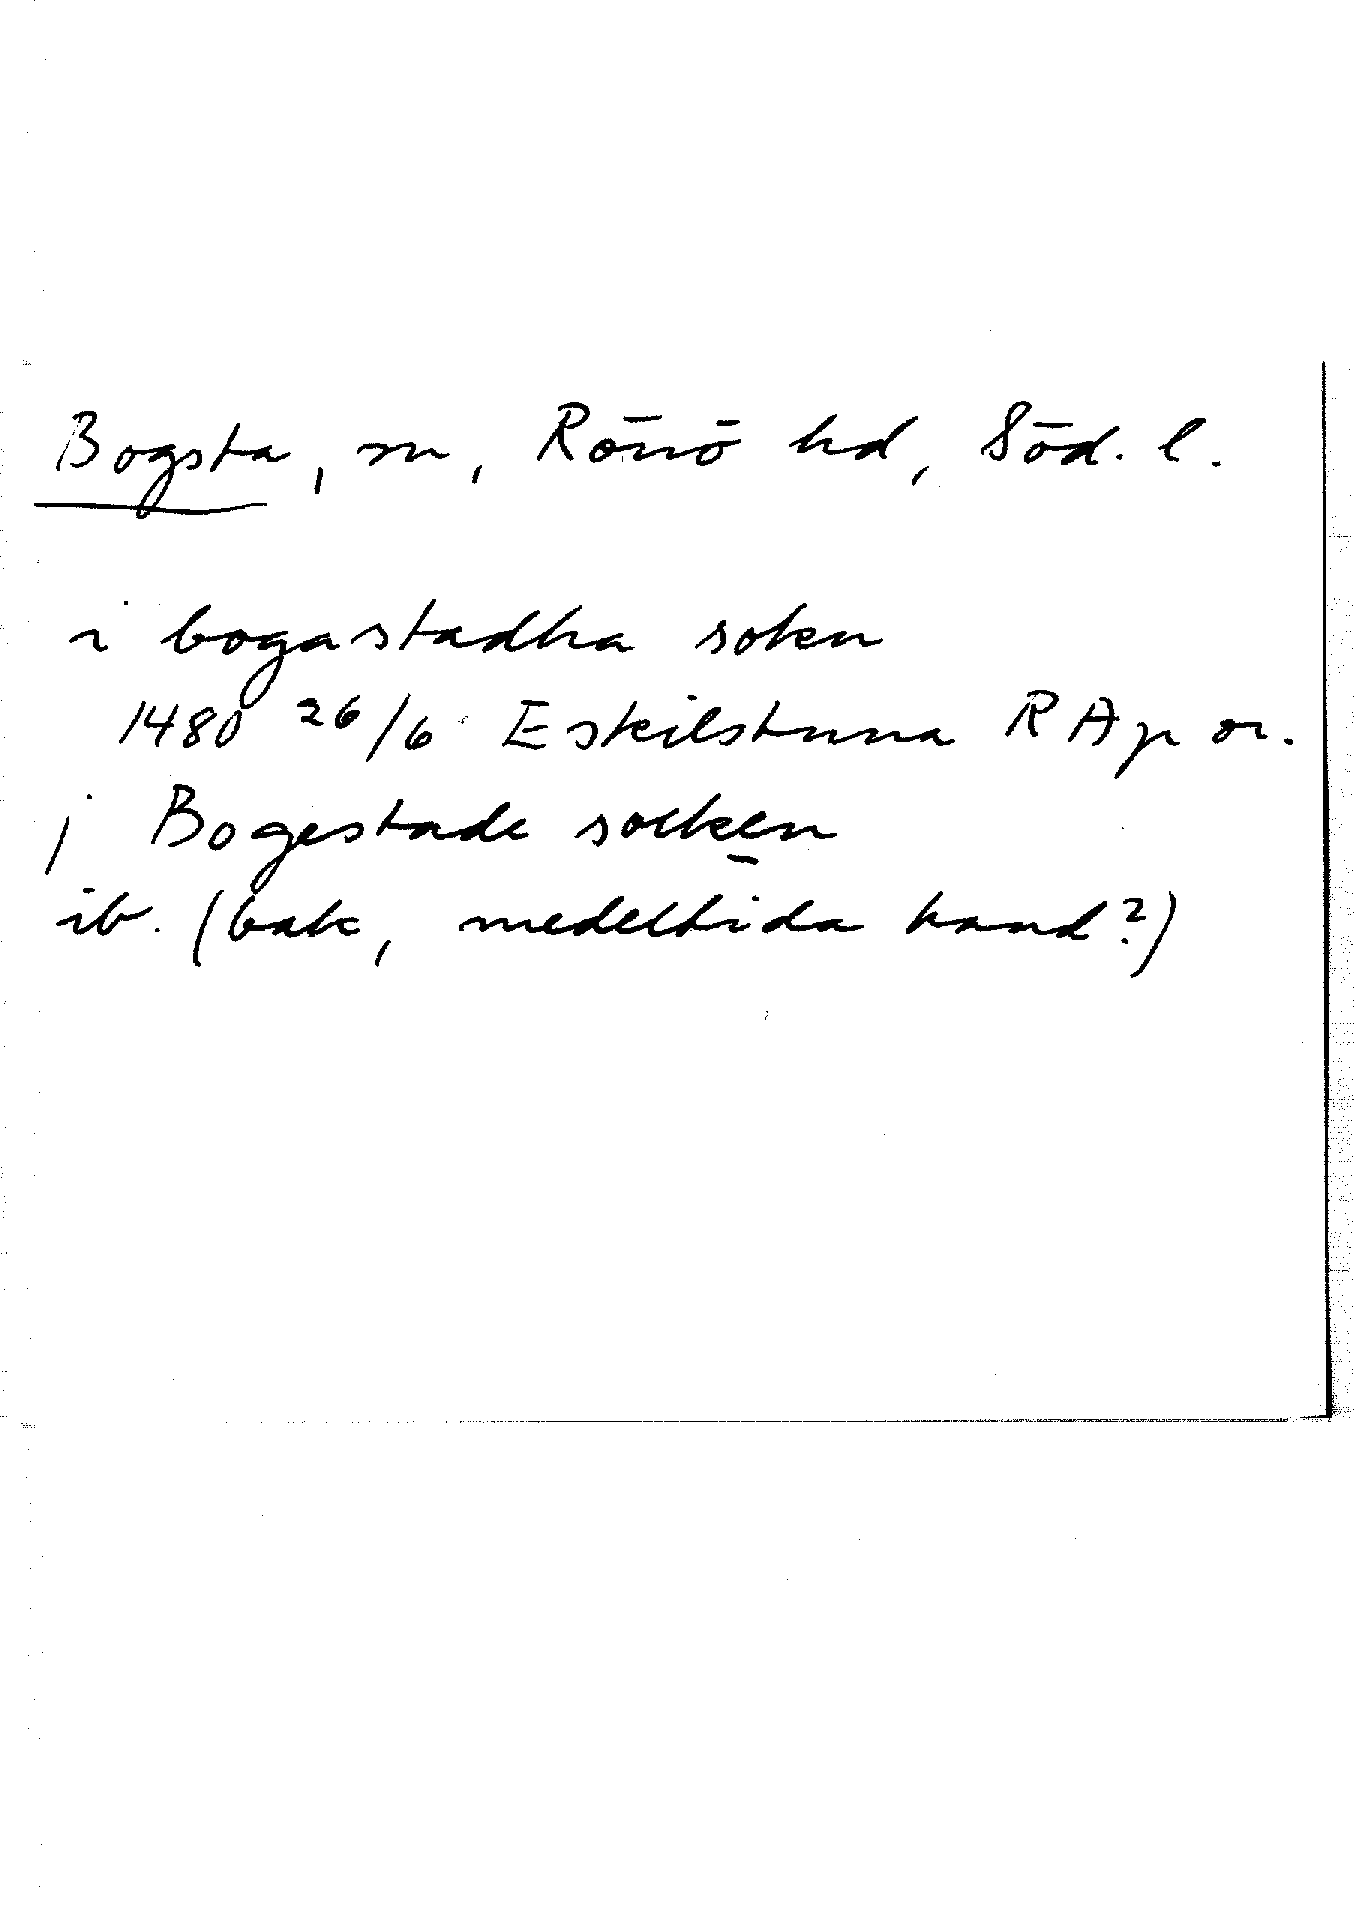 Bogsta, sn, Rönö hd, Söd. l.
i bogastadha soken
1480 26/6 Eskilstuna RAp or.
j Bogestade socken
ib. (bak, medeltida hand?)